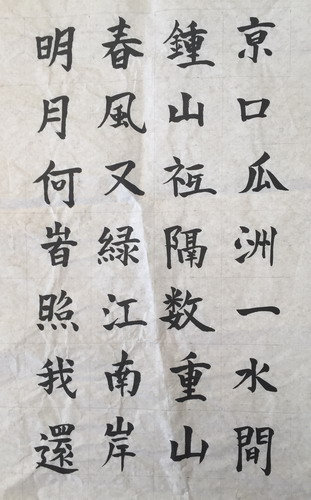 京口瓜洲一水間
鍾山祗隔数重山
春風又緑江南岸
明月何旹照我還